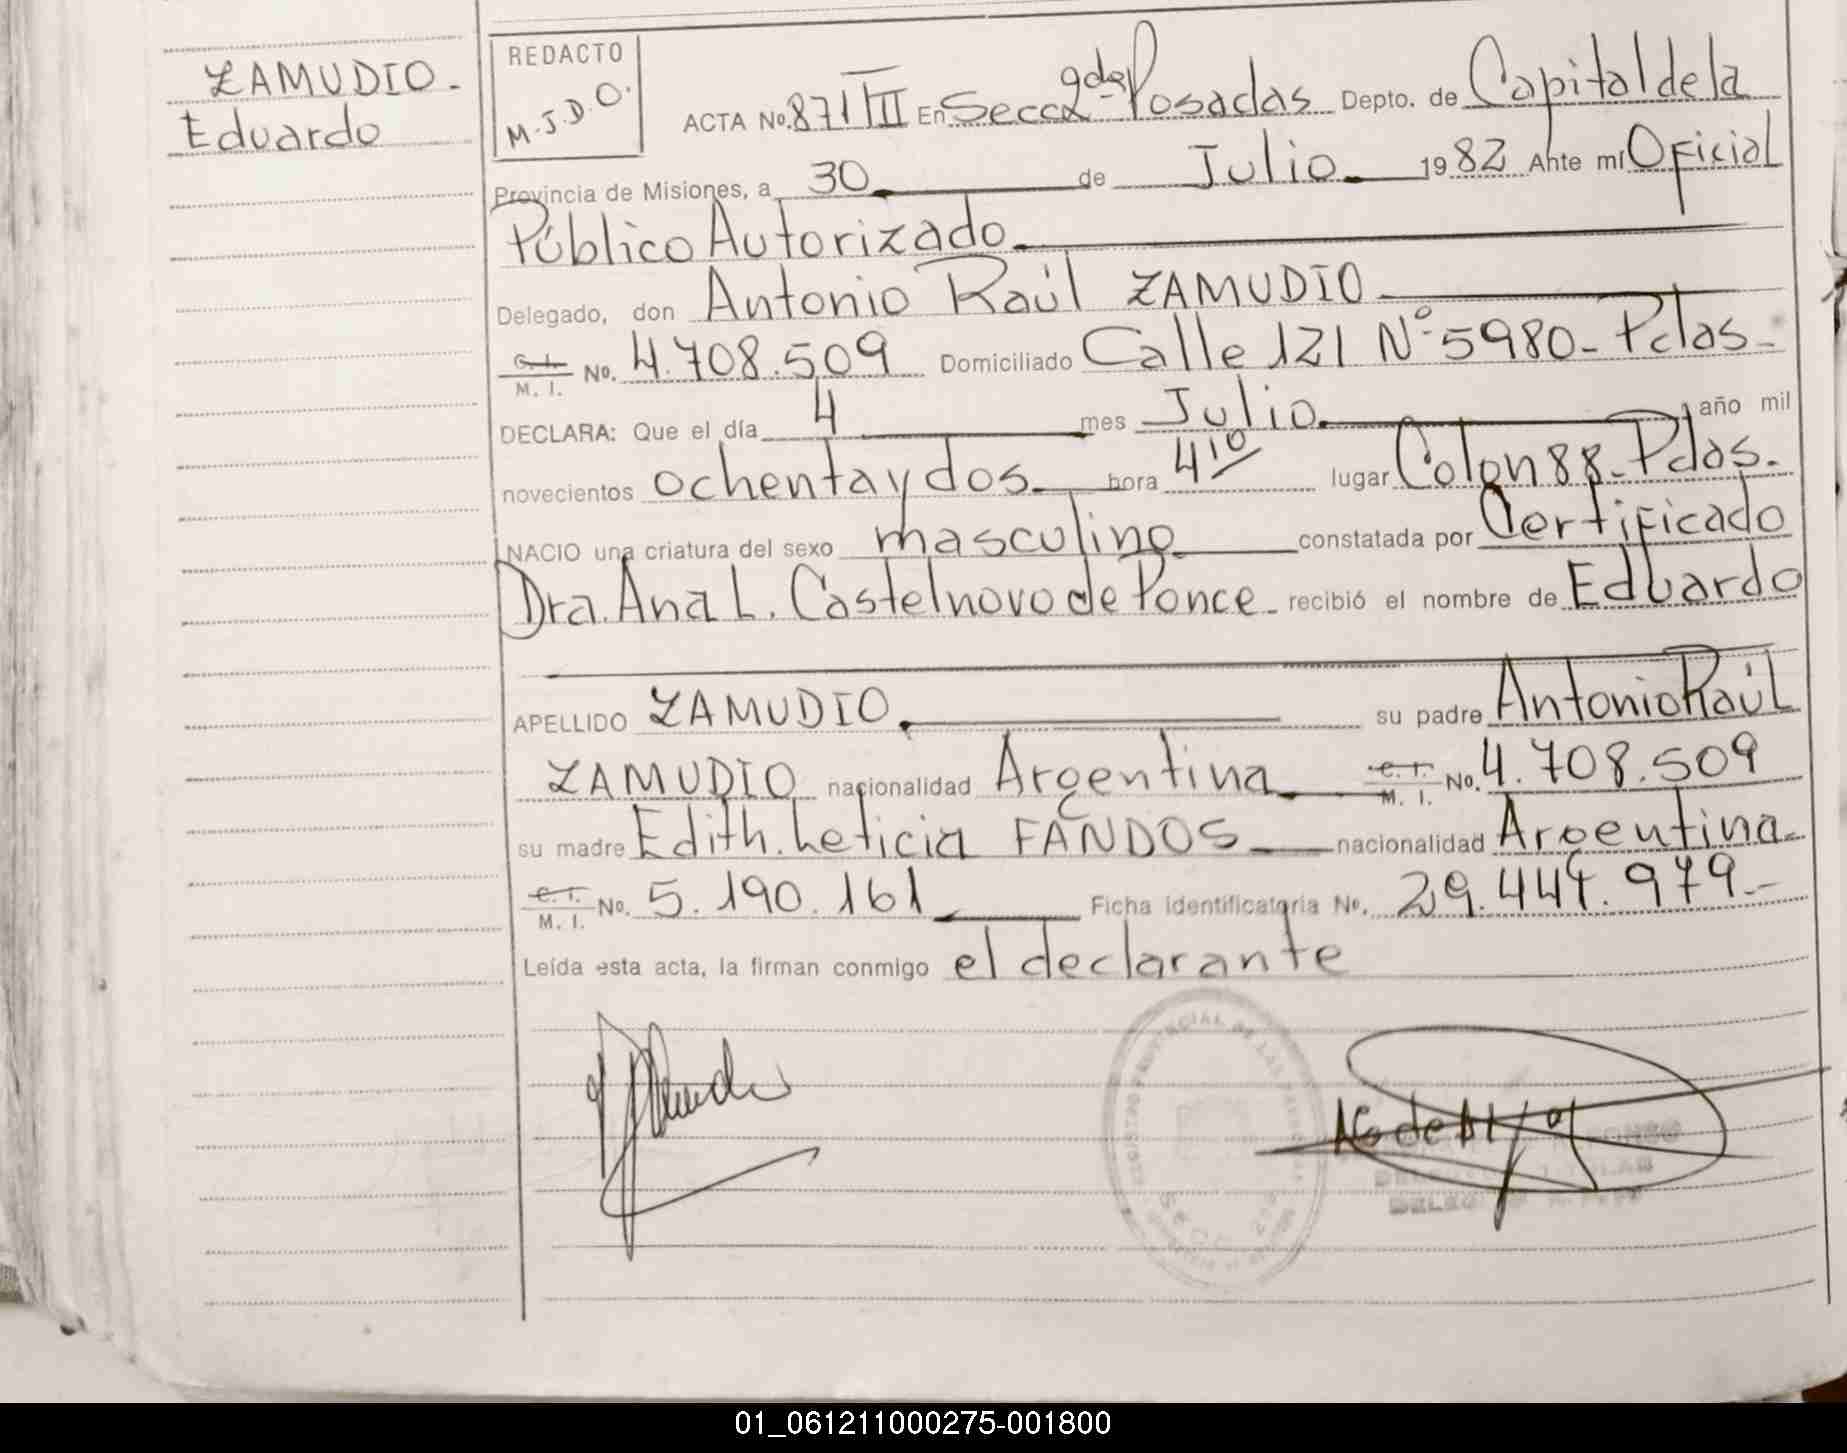 ZAMUDIO.
Eduardo
REDACTO
M.J.D.O.
ACTA No. 871 III En Secc 2da Posadas Depto. de Capital de la
Provincia de Misiones, a 30 de Julio 1982 Ante mí Oficial
Público Autorizado
Delegado, don Antonio Raúl ZAMUDIO
C.I. M. I. No. 4.708.509 Domiciliado Calle 121 Nº 5980- Pdas-
DECLARA: Que el día 4 mes Julio año mil
novecientos ochenta y dos hora 4 10 lugar Colon 88- Pdas.
NACIO una criatura del sexo masculino constatada por Certificado
Dra. Ana L. Castelnovo de Ponce- recibió el nombre de Eduardo
APELLIDO ZAMUDIO su padre Antonio Raúl
ZAMUDIO nacionalidad Argentina C.I. M. I. No. 4.708.509
su madre Edith. Leticia FANDOS nacionalidad Argentina-
C.I. M. I. No. 5.190.161 Ficha identificatoria No. 29.444.979-
Leída esta acta, la firman conmigo el declarante
01_061211000275-001800